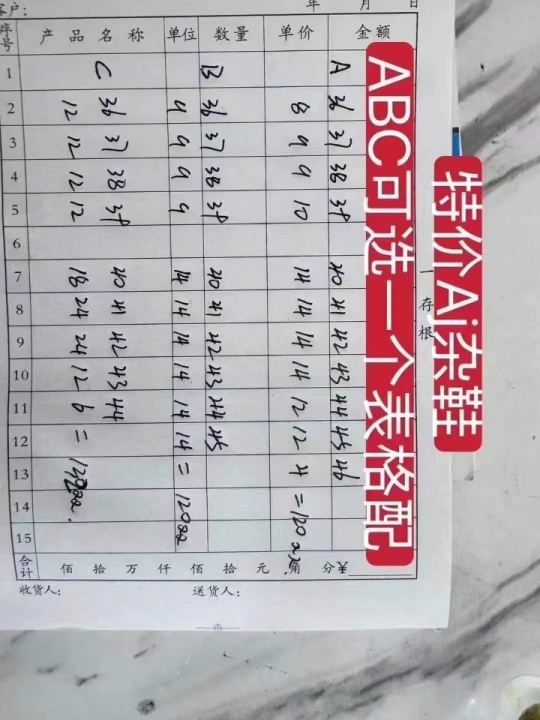 客户：
年 月 日
序号 产品名称 单位 数量 单价 金额
1
2
3
4
5
6
7
8
9
10
11
12
13
14
15
合计 佰 拾 万 仟 佰 拾 元 角 分 ¥
收货人： 送货人：
一存根
A 36 37 38 39 40 41 42 43 44 45 46
8 9 9 10 14 14 14 14 12 12 4 = 120双
B 36 37 38 39 40 41 42 43 44 45
9 9 9 9 14 14 14 14 14 14 = 120双
C 36 37 38 39 40 41 42 43 44
12 12 12 12 18 24 24 12 6 =
特价Aj杂鞋
ABC可选一个表格配